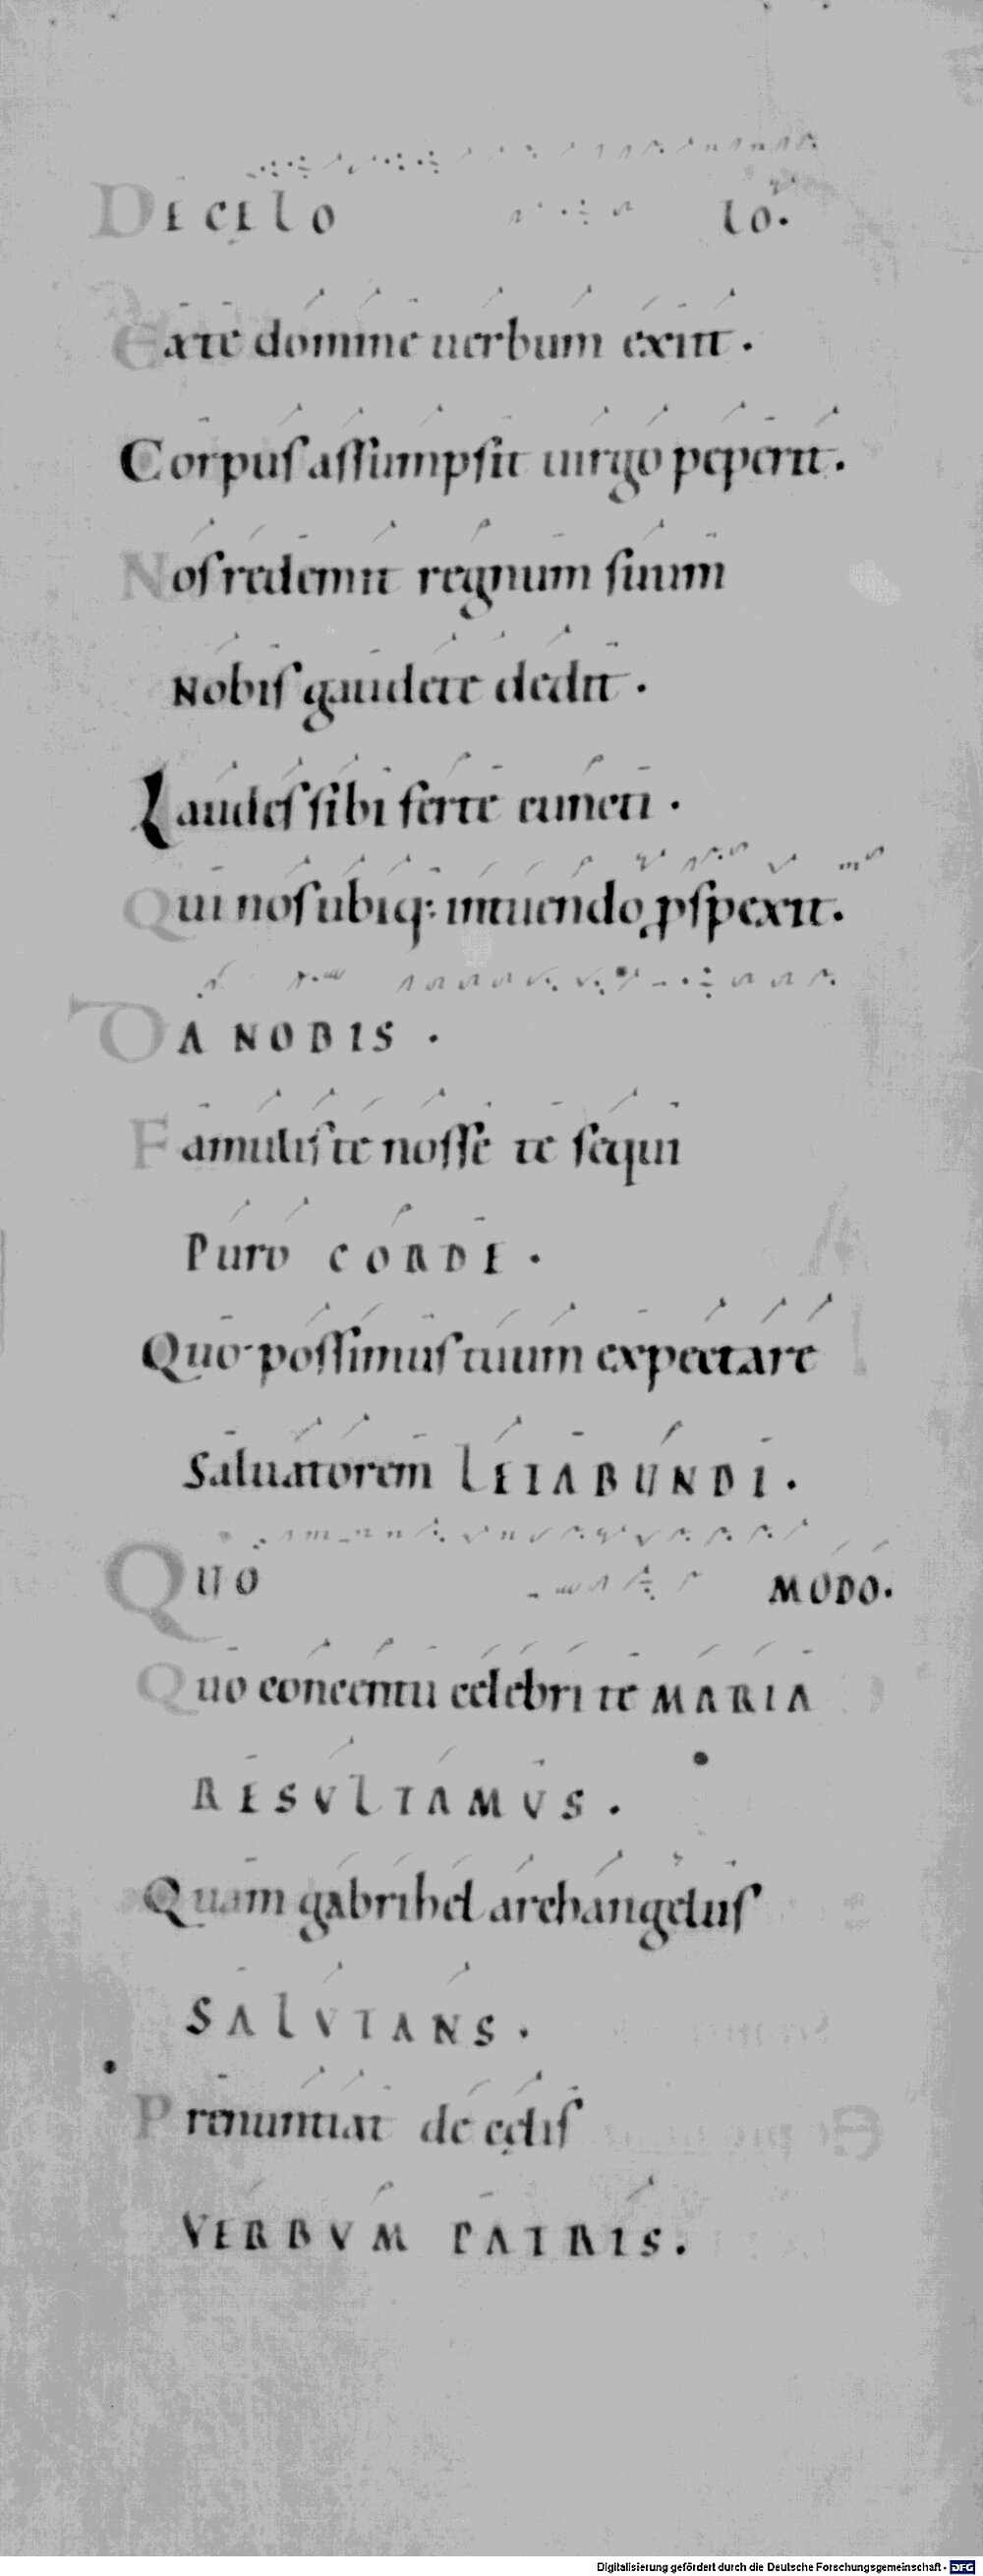 DE CĘLO LO.
Ex te domine uerbum exiit.
Corpus assumpsit uirgo peperit.
Nos redemit regnum suum
Nobis gaudere dedit.
Laudes sibi ferte cuncti.
Qui nos ubiq; intuendo ꝓspexit.
DA NOBIS.
Famulis te nosse te sequi
Puro CORDE.
Quo possimus tuum expectare
Saluatorem LETABUNDI.
QUO MODO.
Quo concentu celebri te MARIA
RESULTAMVS.
Quam gabrihel archangelus
SALVTANS.
Prenuntiat de cęlis
VERBVM PATRIS.
Digitalisierung gefördert durch die Deutsche Forschungsgemeinschaft - DFG